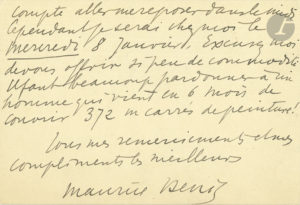 compte aller me reposer dans le midi
Cependant je serai chez moi le
Mercredi 8 Janvier. Excusez moi
de vous offrir si peu de commodité
Il faut beaucoup pardonner à un
homme qui vient en 6 mois de
couvrir 372 m carrés de peinture!
Tous mes remerciements et mes
compliments les meilleurs
Maurice Denis